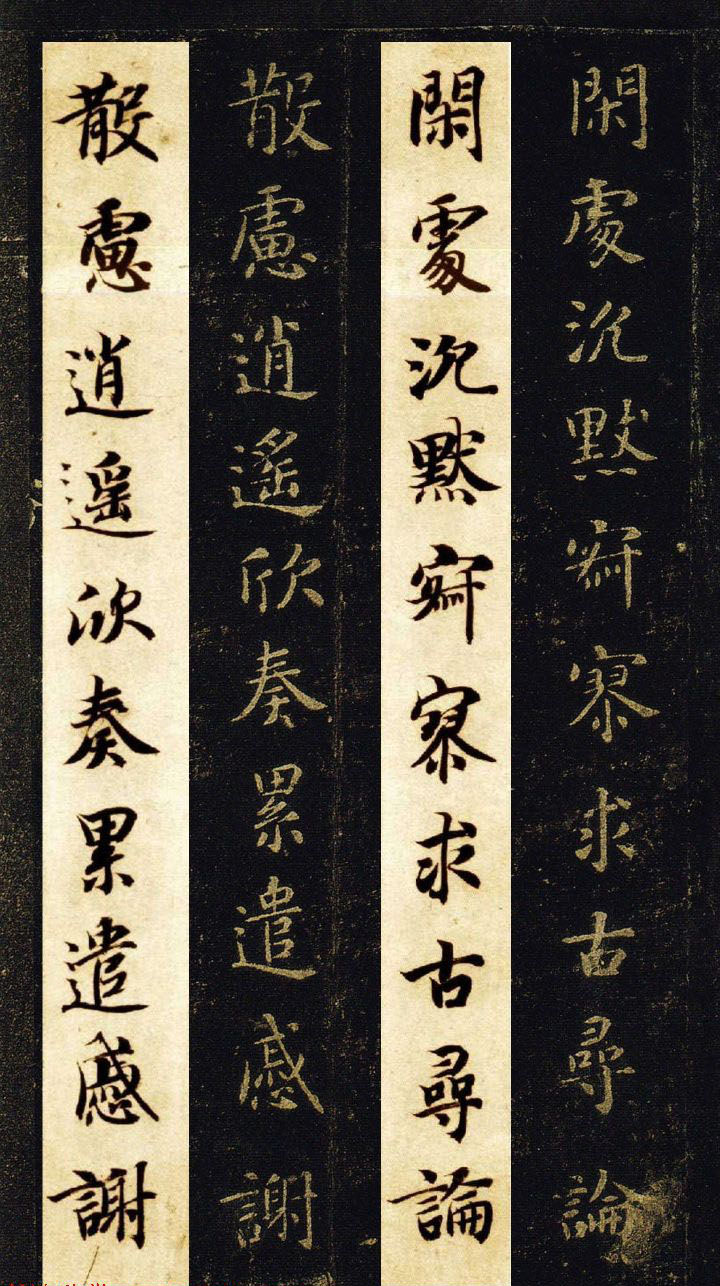 閑處沉默寂寥求古尋論
閑處沉默寂寥求古尋論
散慮逍遙欣奏累遣慼謝
散慮逍遙欣奏累遣慼謝